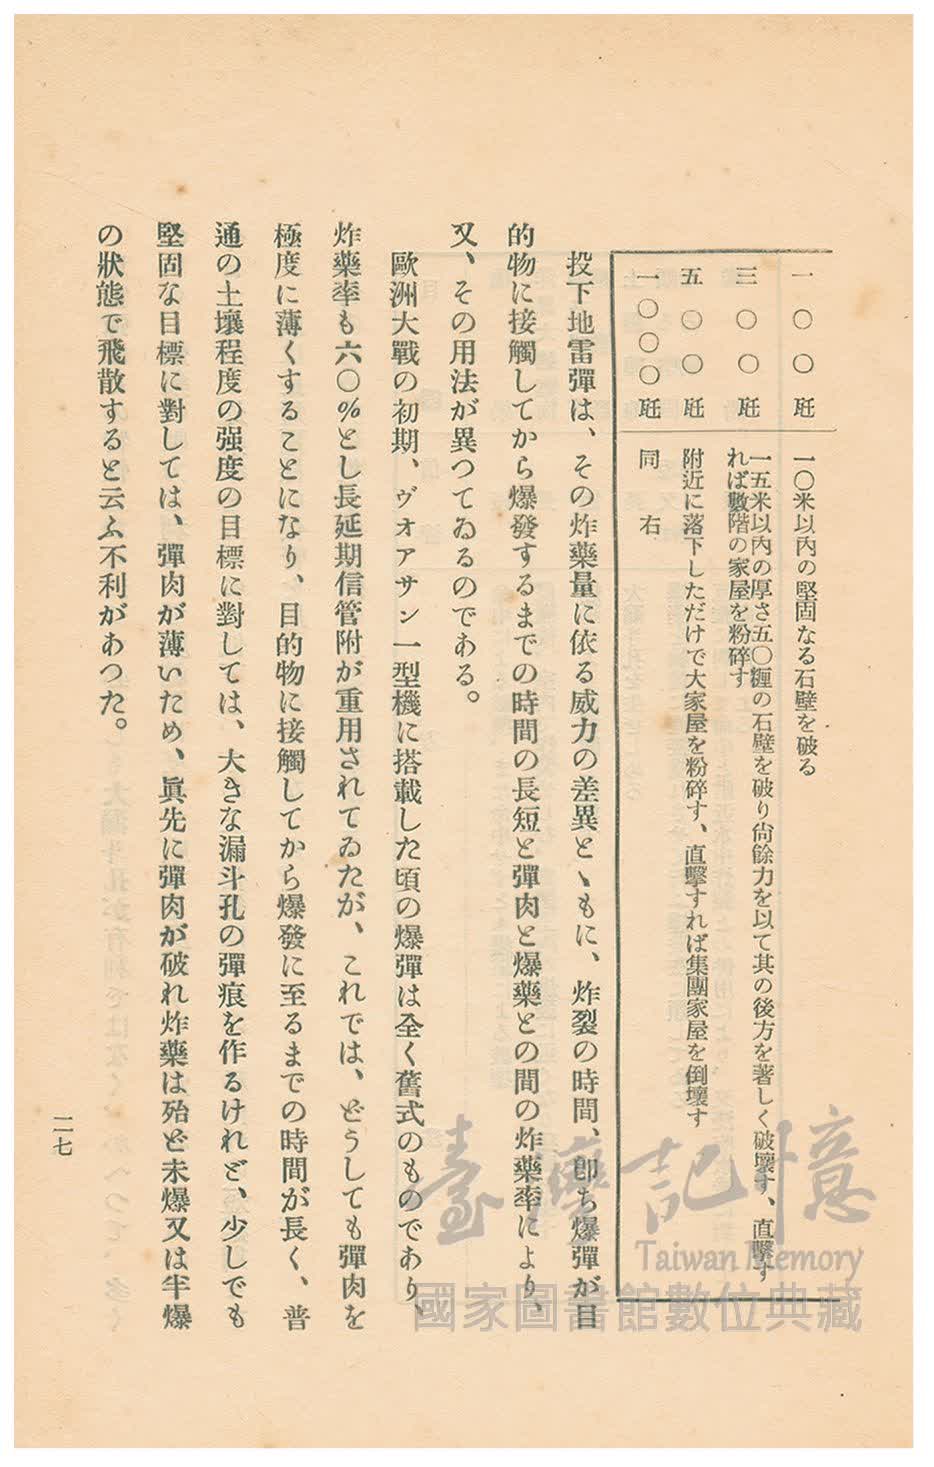 一〇〇瓩 一〇米以內の堅固なる石壁を破る
三〇〇瓩 一五米以內の厚さ五〇糎の石壁を破り尙餘力を以て其の後方を著しく破壞す、直擊す
れば數階の家屋を粉碎す
五〇〇瓩 附近に落下しただけで大家屋を粉碎す、直擊すれば集團家屋を倒壞す
一〇〇〇瓩 同右
投下地雷彈は、その炸藥量に依る威力の差異とゝもに、炸裂の時間、卽ち爆彈が目
的物に接觸してから爆發するまでの時間の長短と彈肉と爆藥との間の炸藥率により、
又、その用法が異つてゐるのである。
歐洲大戰の初期、ヴオアサン一型機に搭載した頃の爆彈は全く舊式のものであり、
炸藥率も六〇％とし長延期信管附が重用されてゐたが、これでは、どうしても彈肉を
極度に薄くすることになり、目的物に接觸してから爆發に至るまでの時間が長く、普
通の土壤程度の强度の目標に對しては、大きな漏斗孔の彈痕を作るけれど、少しでも
堅固な目標に對しては、彈肉が薄いため、眞先に彈肉が破れ炸藥は殆ど未爆又は半爆
の狀態で飛散すると云ふ不利があつた。
二七
臺灣記憶
Taiwan Memory
國家圖書館數位典藏